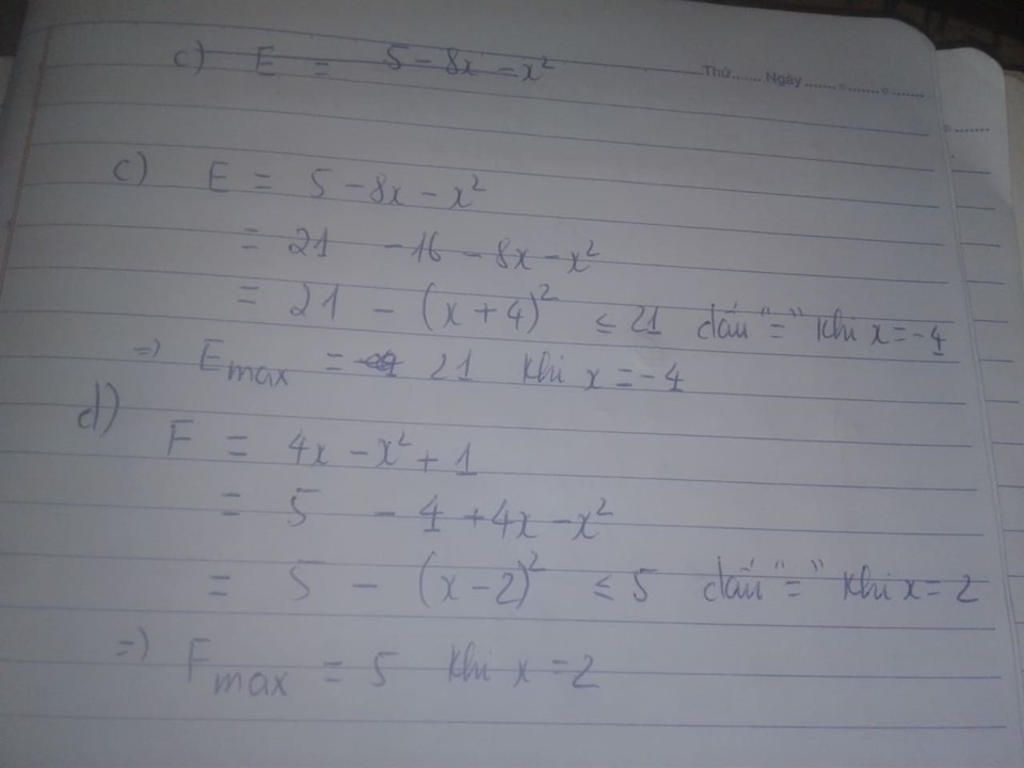 c) E = 5 - 8x - x²
Thứ...... Ngày ...........................
c) E = 5 - 8x - x²
= 21 - 16 - 8x - x²
= 21 - (x + 4)² ≤ 21 dấu "=" khi x = -4
=> E max = 21 khi x = -4
d)
F = 4x - x² + 1
= 5 - 4 + 4x - x²
= 5 - (x - 2)² ≤ 5 dấu "=" khi x = 2
=> F max = 5 khi x = 2